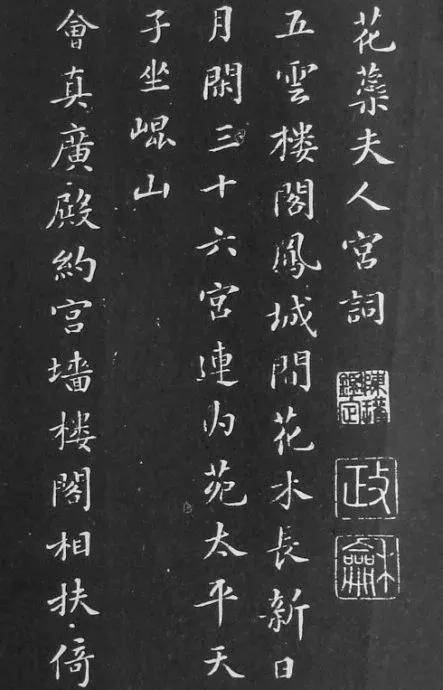 花蘂夫人宮詞
五雲楼閣鳳城間花木長新日
月閑三十六宮連内苑太平天
子坐崐山
會真廣殿約宮墻楼閣相扶倚
政
龢